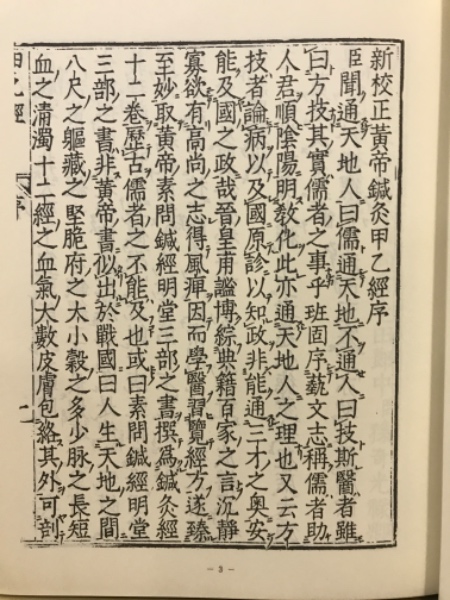 新校正黃帝鍼灸甲乙經序
臣聞通天地人曰儒通天地不通人曰技斯醫者雖
曰方技其實儒者之事乎班固序藝文志稱儒者助
人君順陰陽明教化此亦通天地人之理也又云方
技者論病以及國原診以知政非能通三才之奧安
能及國之政哉晉皇甫謐博綜典籍百家之言沉靜
寡欲有高尚之志得風痺因而學醫習覽經方遂臻
至妙取黃帝素問鍼經明堂三部之書撰爲鍼灸經
十二卷歷古儒者之不能及也或曰素問鍼經明堂
三部之書非黃帝書似出於戰國曰人生天地之間
八尺之軀藏之堅脆府之大小穀之多少脉之長短
血之清濁十二經之血氣大數皮膚包絡其外可剖
甲乙經 序
- 3 -